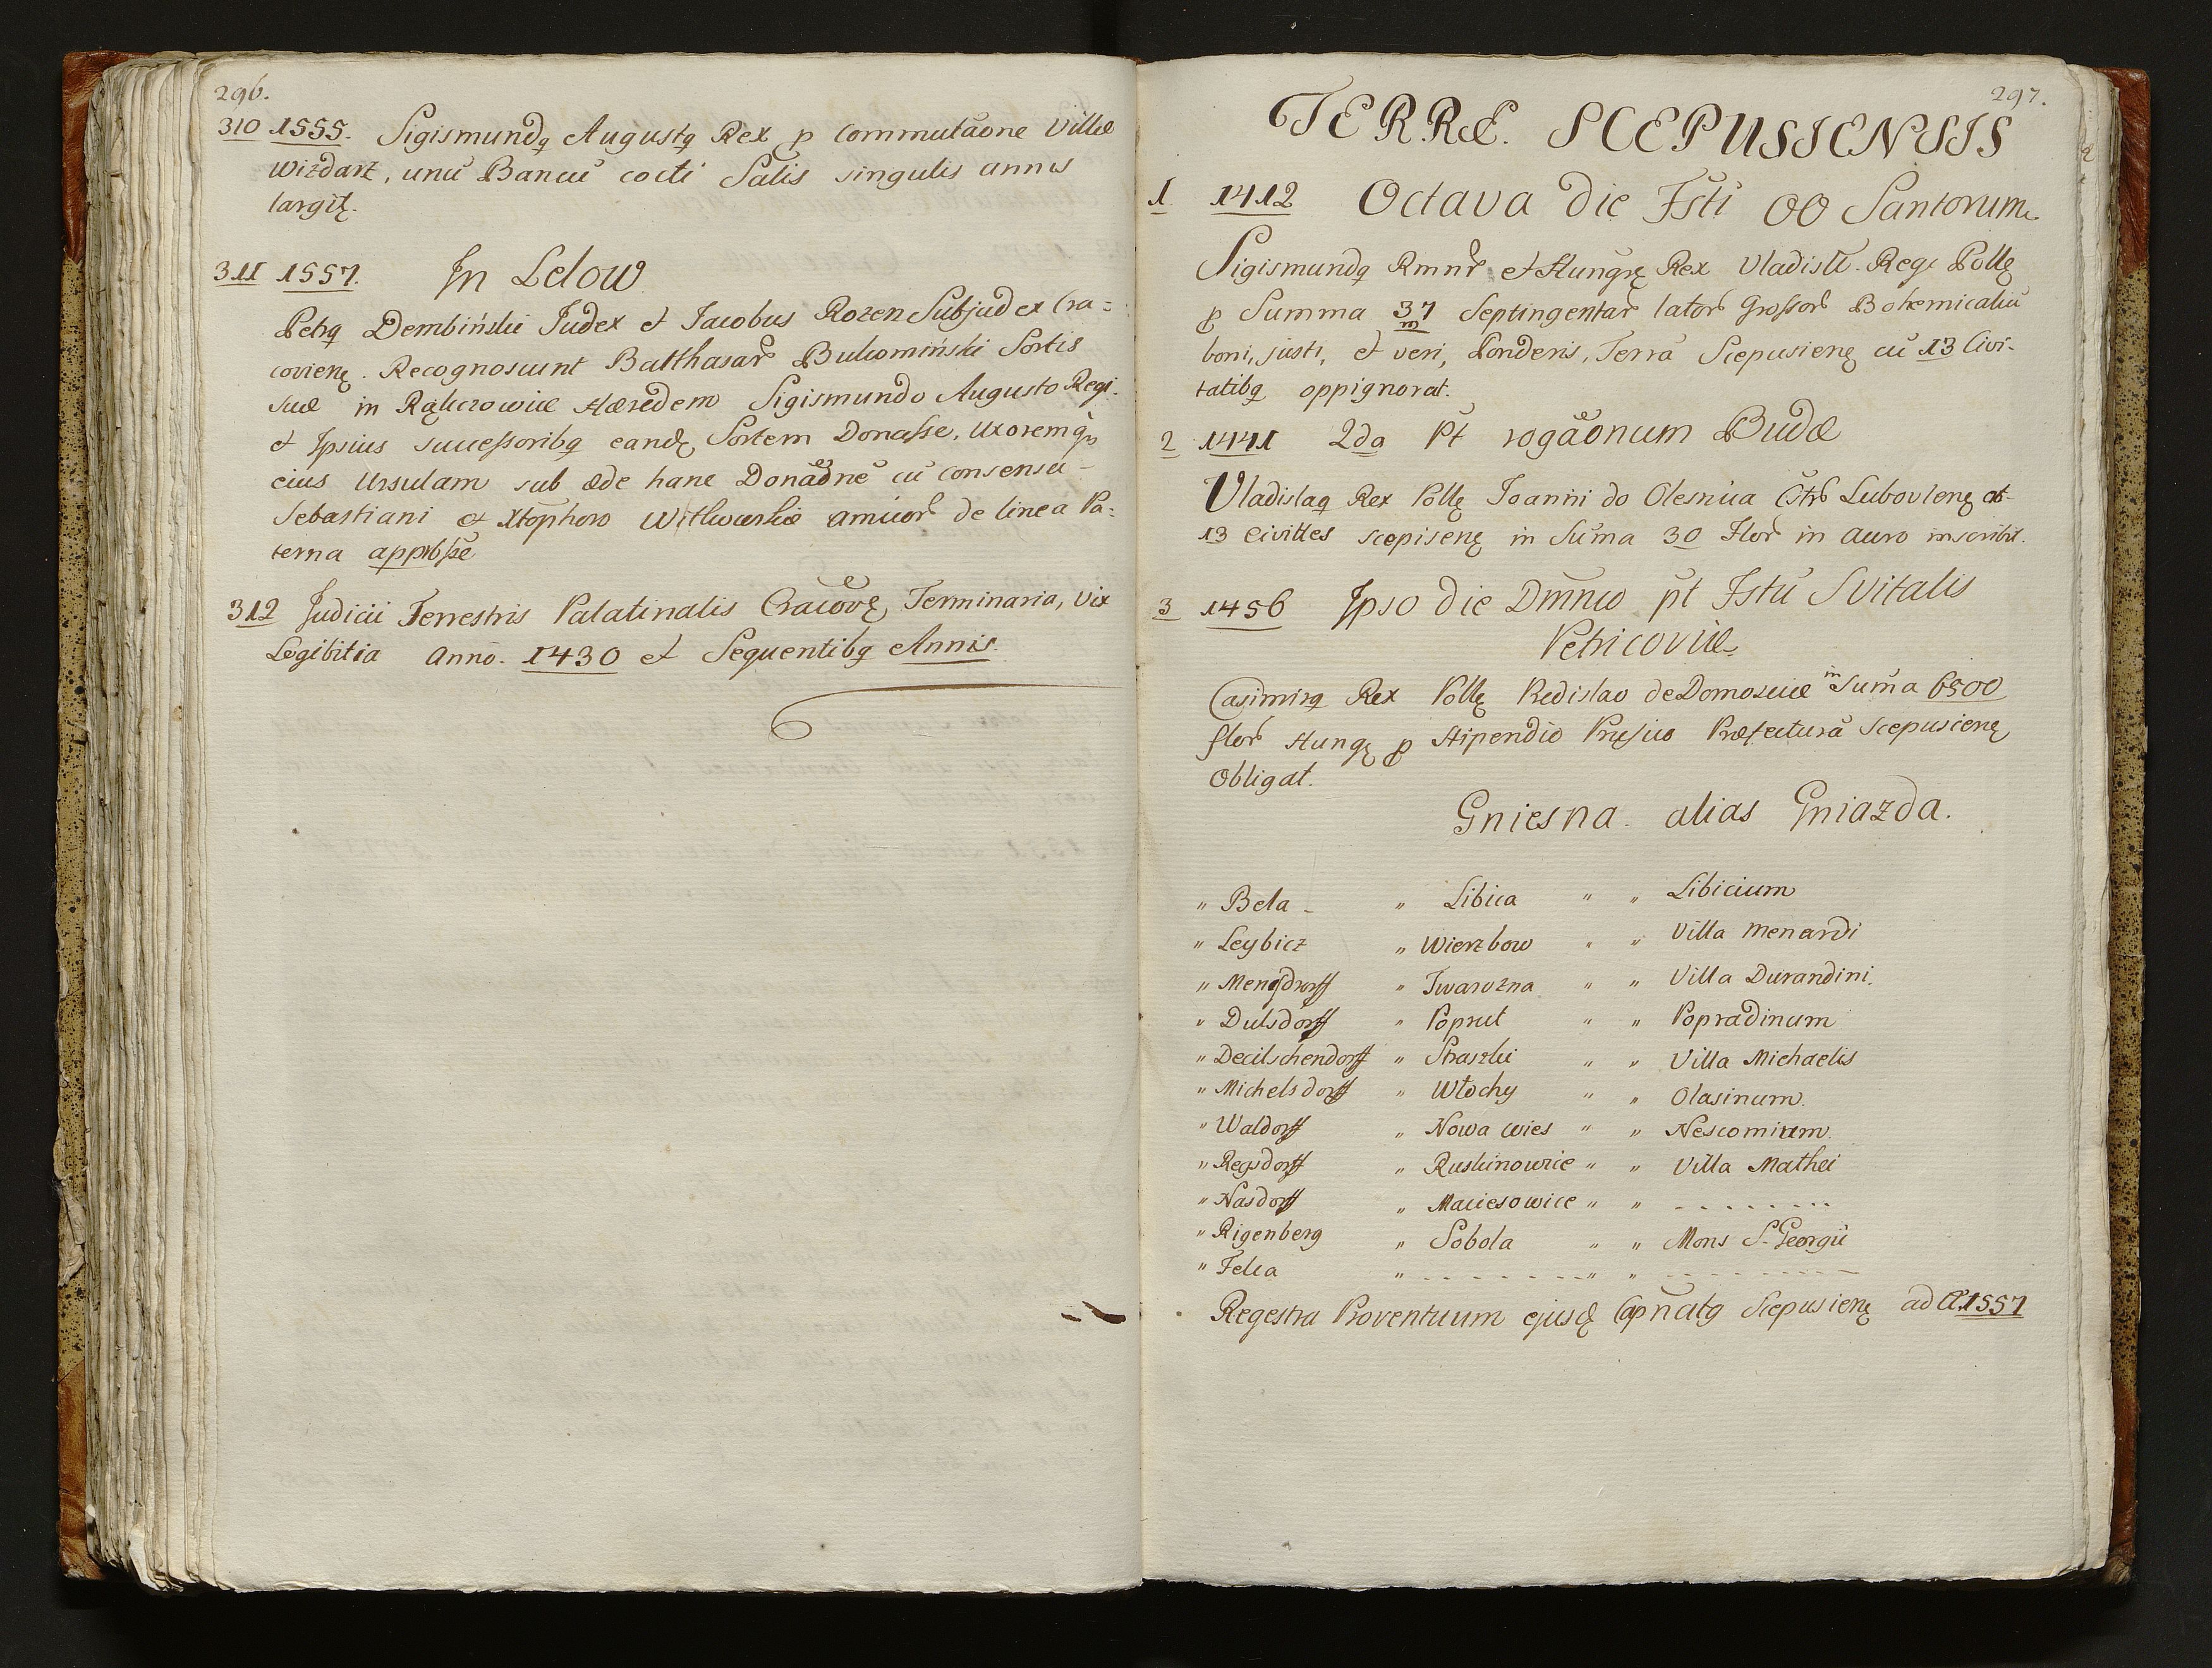 296.
310 1555. Sigismundq Augustq Rex p Commutãone Villæ
Wizdarz, unũ Bancũ cocti Salis singulis annis
largitę.
311 1557. In Lelow
Petrq Dembiński Judex et Jacobus Rozen Subjudex Cra=
covienę. Recognoscunt Balthasar Bukomiński Sortis
suæ in Rąkrowice Hæredem Sigismundo Augusto Regi.
et Ipsius successoribq eandę Sortem Donasse, Uxoremqƺ
eius Ursulam sub æde hanc Donãõne cũ consensu
Sebastiani et Xtophoro Witkowskie amicor de linea Pa:
terna approbsse
312 Judicii Terrestris Palatinalis Cracovę, Terminaria, vix
Legibilia Anno. 1430 et Sequentibq Annis.
297.
TERRÆ. SCEPUSIENSIS
1 1412 Octava die Fsti OO Santorum
Sigismundq Rmnr et Hungrę Rex Vladisl. Regi Pollę
p Summa 37 m Septingentar lator Grossor Bohemicaliũ
boni, justi, et veri, Ponderis, Terrã Scepusienę cũ 13 Civi-
tatibq oppignorat.
2 1441 2da Pt rogãonum Budæ
Vladislaq Rex Pollę Joanni do Olesnica Lubovlenę
13 Civittes scepisenę in Sum̃a 30 Flor in Auro inscribit.
3 1456 Ipso die Dmnco pt Fstũ S Vitalis
Petricoviæ
Casimirq Rex Pollę Redislao de Domoscice in Sum̃a 6500
flor Hungę p Stipendio Præfecturã Scepusienę
Obligat.
Gniesna alias Gniazda.
" Bela - " Libica " " Libicium
" Leybicz " Wierzbow " " Villa Menardi
" Mengsdrorff " Twarozna " " Villa Durandini.
" Dulsdorff " Poprut " " Popradinum
" Decilschendorff " Straszki " " Villa Michaelis
" Michelsdorff " Włochy " " Olasinum.
" Waldorff " Nowa wies " " Nescomium.
" Regsdorff " Ruskinowice " " Villa Mathei
" Nasdorff " Maciesowice " " - - - - - - - -
" Rigenberg " Sobola " " Mons S. Georgii
" Felca " - - - - - - - " " - - - - - - - -
Regestra Proventuum ejusdę Capñatq Scepusienę ad A. 1557